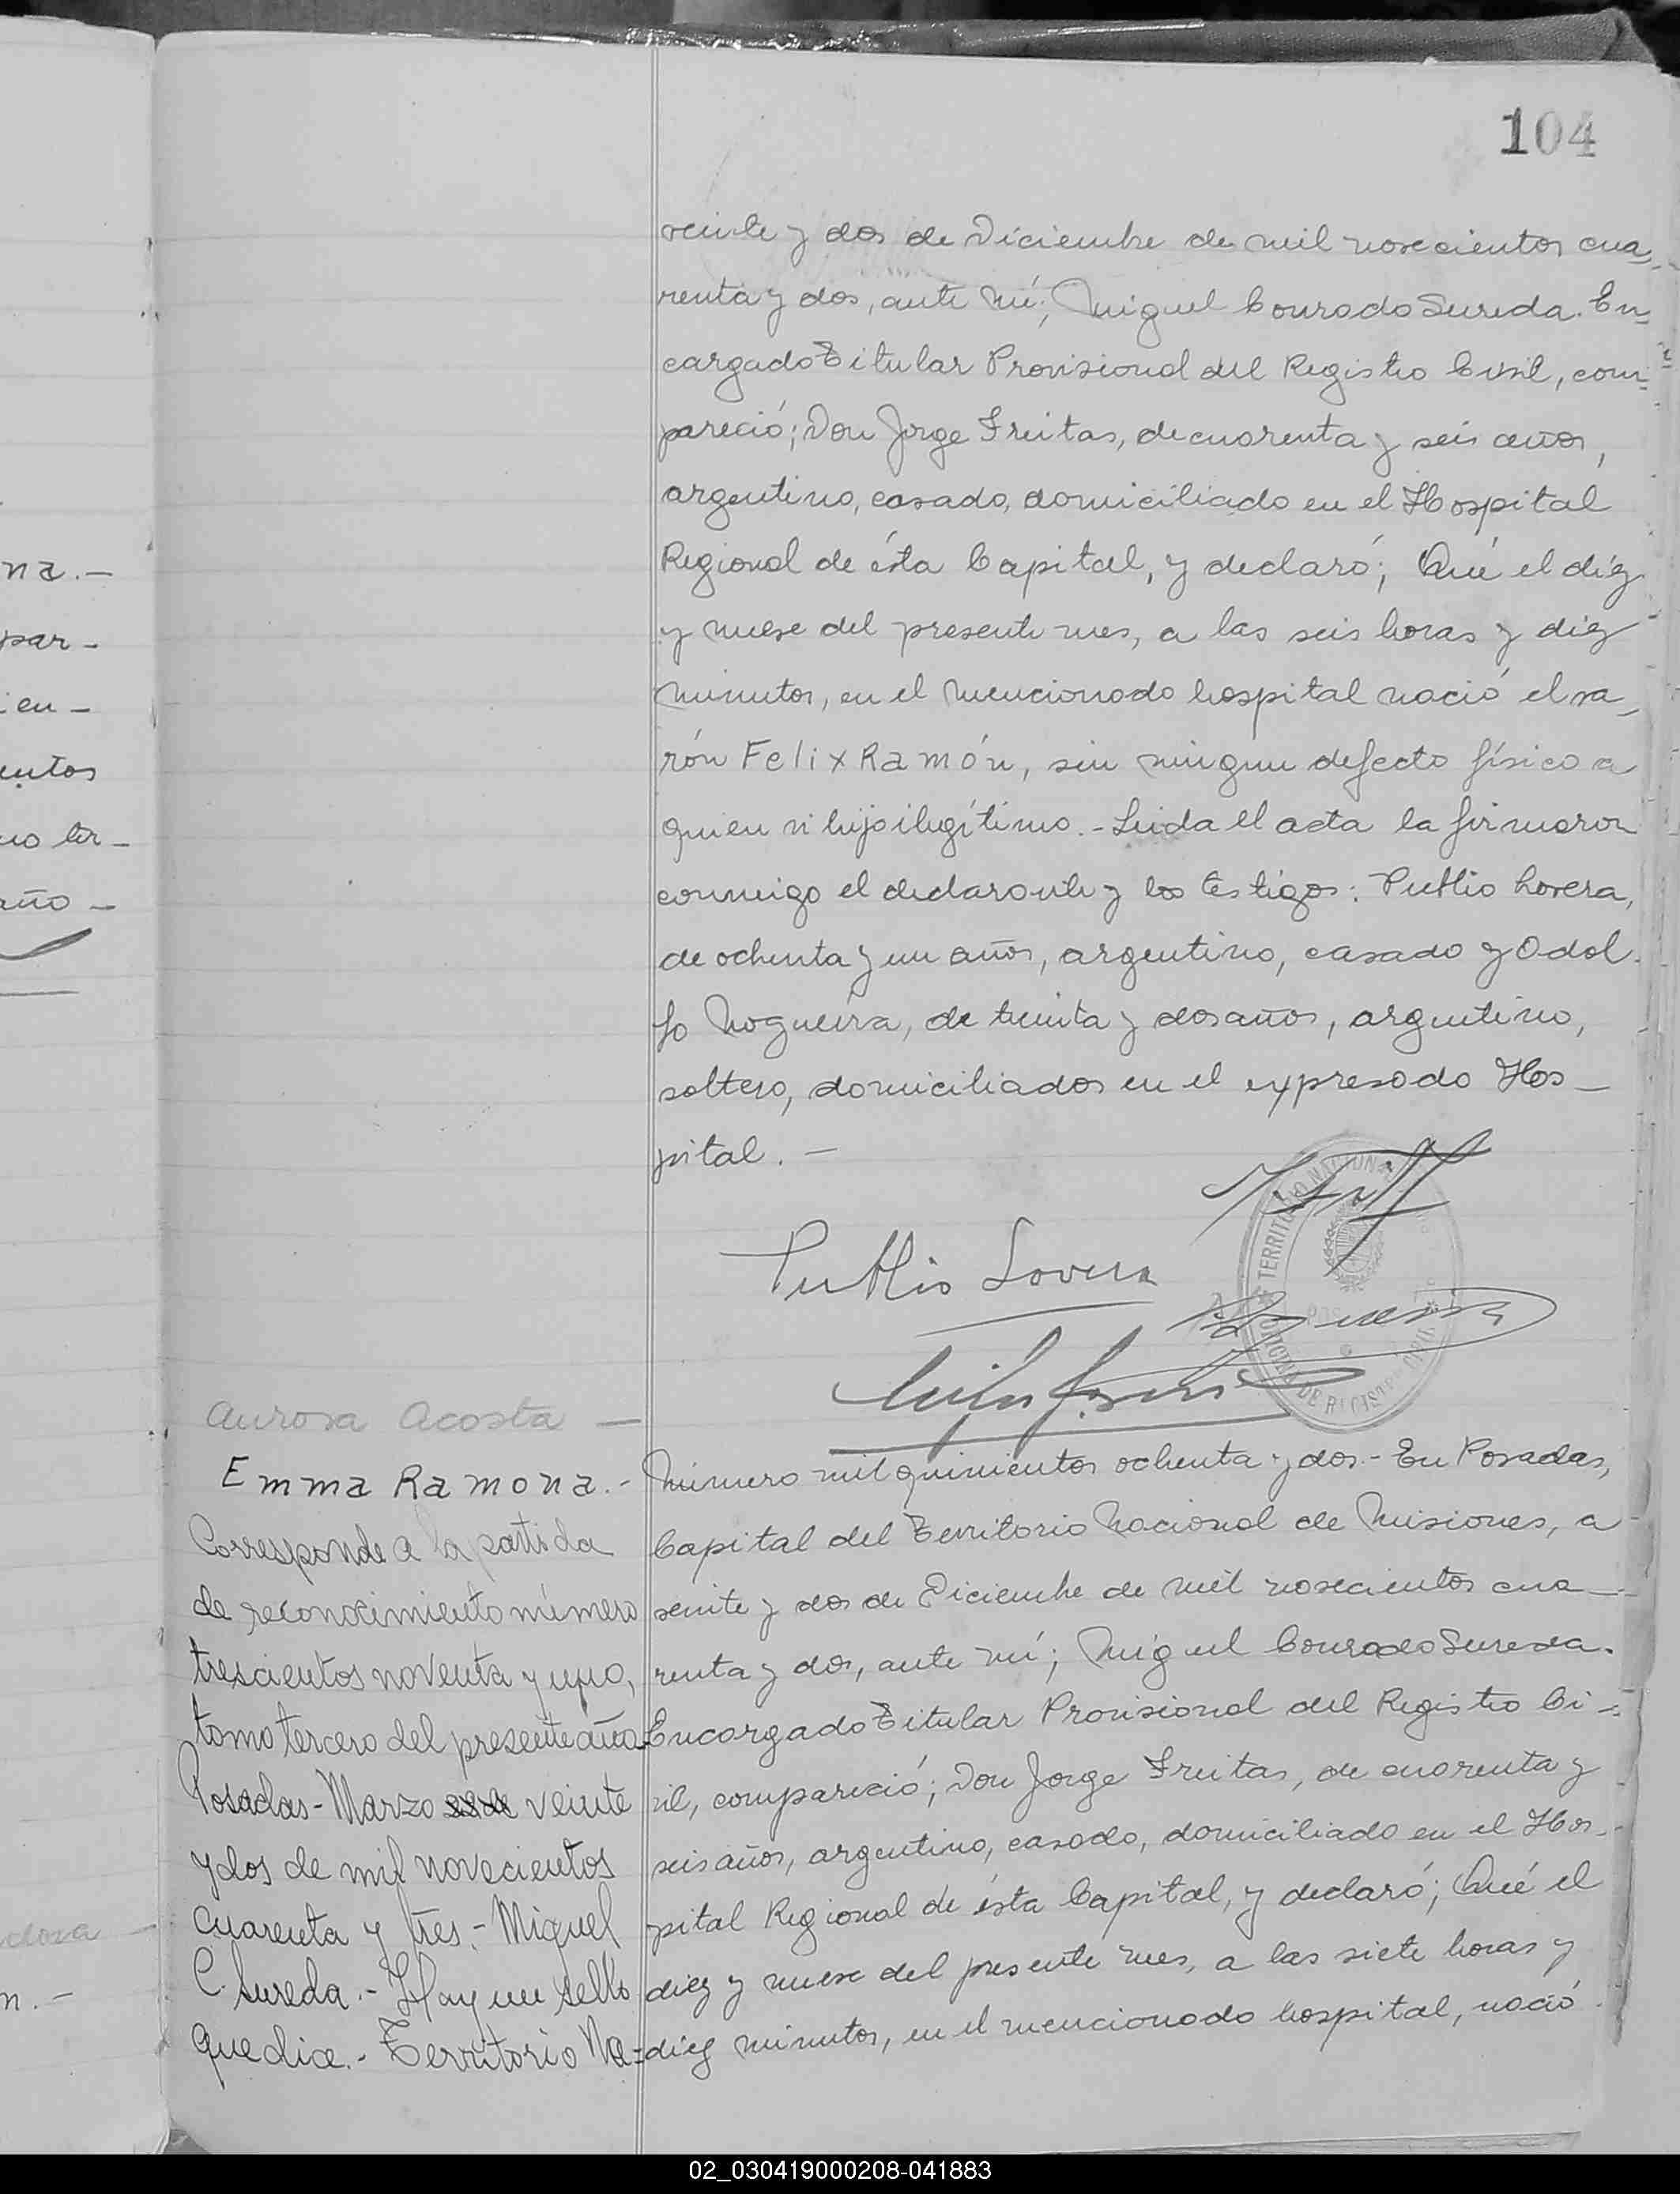 104
veinte y dos de Diciembre de mil novecientos cua,
renta y dos, ante mí; Miguel Conrado Sureda. En=
cargado Titular Provisional del Registro Civil, com=
pareció; Don Jorge Freitas, de cuarenta y seis años,
argentino, casado, domiciliado en el Hospital
Regional de ésta Capital, y declaró; Qué el diéz
y nueve del presente mes, a las seis horas y diez
minutos, en el mencionado hospital nació el va_
rón Felix Ramón, sin ningun defecto físico a
quien vi hijo ilegítimo.- Leida el acta la firmaron
conmigo el declarante y los testigos: Publio Lovera,
de ochenta y un años, argentino, casado y Odol.
fo Nogueira, de treinta y dos años, argentino,
soltero, domiciliados en el expresado Hos_
pital. —
Publio Lovera
TERRITORIO NACIONAL
OFICINA DE REGISTRO CIVIL
Aurora Acosta —
Emma Ramona.-
Corresponde a la partida
de reconocimiento número
trescientos noventa y uno,
tomo tercero del presente año
Posadas - Marzo veinte
y dos de mil novecientos
cuarenta y tres.- Miguel
C. Sureda.- Hay un sello
que dice.- Territorio Na=
Número mil quinientos ochenta y dos.- En Posadas,
Capital del Territorio Nacional de Misiones, a
veinte y dos de Diciembre de mil novecientos cua_
renta y dos, ante mí; Miguel Conrado Sureda.
Encargado Titular Provisional del Registro Ci-
vil, compareció; Don Jorge Freitas, de cuarenta y
seis años, argentino, casado, domiciliado en el Hos_
pital Regional de ésta Capital, y declaró; Qué el
diez y nueve del presente mes, a las siete horas y
diez minutos, en el mencionado hospital, nació
na.—
par-
ien-
entos
no ter-
año -
n.-
02_030419000208-041883